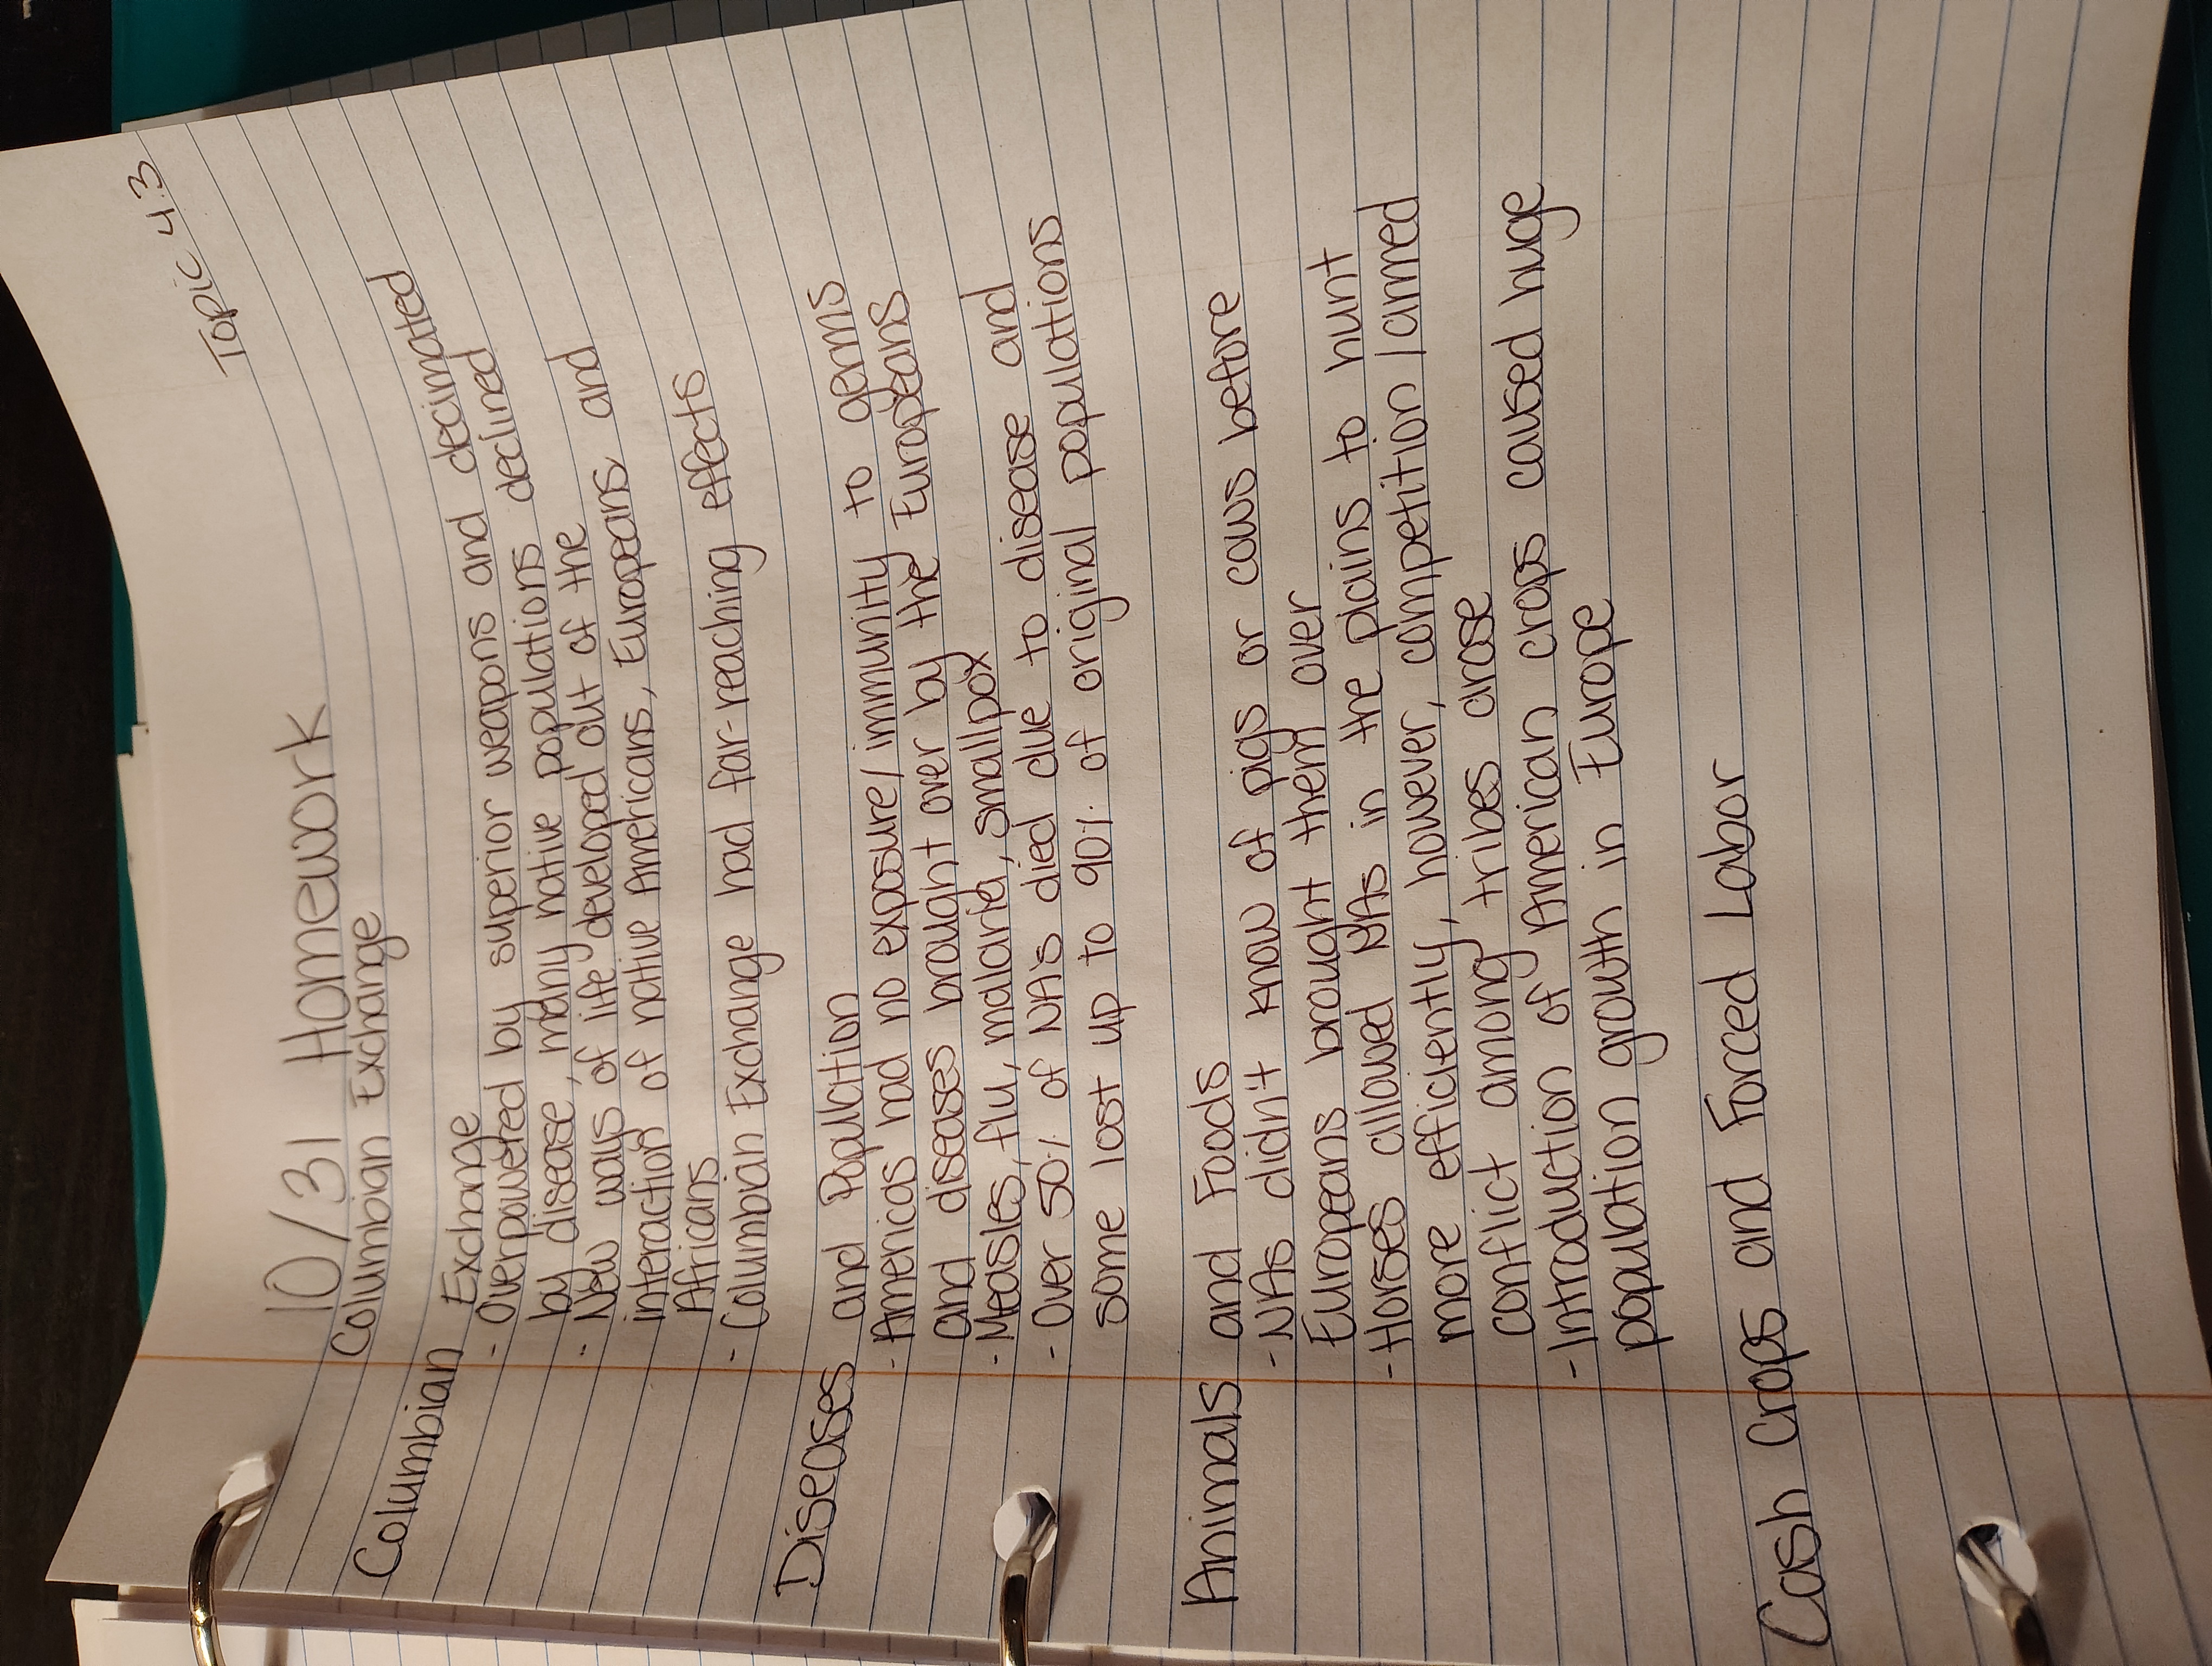 Topic 4.3
10/31 Homework
Columbian Exchange
Columbian Exchange
- Overpowered by superior weapons and decimated
by disease, many native populations declined
- New ways of life developed out of the
interaction of native Americans, Europeans, and
Africans
- Columbian Exchange had far-reaching effects
Diseases and Population
- Americas had no exposure/immunity to germs
and diseases brought over by the Europeans
- Measles, flu, malaria, smallpox
- Over 50% of NA's died due to disease and
some lost up to 90% of original populations
Animals and Foods
- NAs didn't know of pigs or cows before
Europeans brought them over
- Horses allowed NAs in the plains to hunt
more efficiently, however, competition/armed
conflict among tribes arose
- Introduction of American crops caused huge
population growth in Europe
Cash Crops and Forced Labor